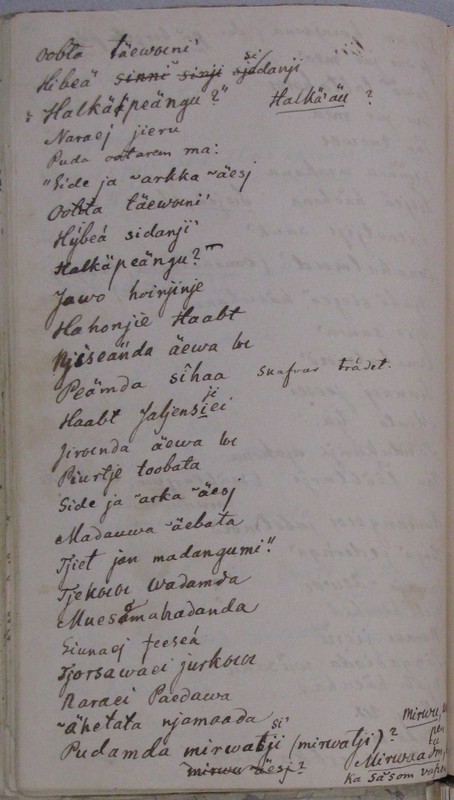 oobta täewoeni'
Hibeä sinni sinji sidanji
Halkä peängu?" Halkä äu ?
Naraej jieru
Puda ootarem ma:
"Side ja ~arkka ~äesj
oobta täewoeni'
Hýbeá sidanji'
Halkä peängu?"
Jawo hoinjinje
Hahonjie Haabt
Njiseända äewa
Peämda sihaa sunfvar trädet.
Haabt Jaljensiei
ji
Jiroenda äewa
Piurtje toobata
Side ja ~arka ~äesj
Madauwa ~äebata
Tjiet jon madangumi."
Tjekouu wadamda
Muesämahadanda
Siunaej feeseá
Tjorsawaei jurkouu
Naraei Paedawa
~ähetata njamaada
Pudamda mirwatji (mirwatji)?
si'
mirwu ~äesj?
Mirwu
Mirwaad
ka såsom